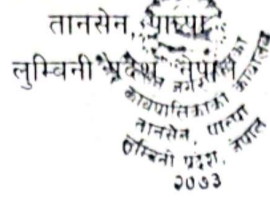 तानसेन, पाल्पा
लुम्बिनी प्रदेश, नेपाल
कार्यपालिकाको कार्यालय
तानसेन, पाल्पा
लुम्बिनी प्रदेश, नेपाल
२०७३